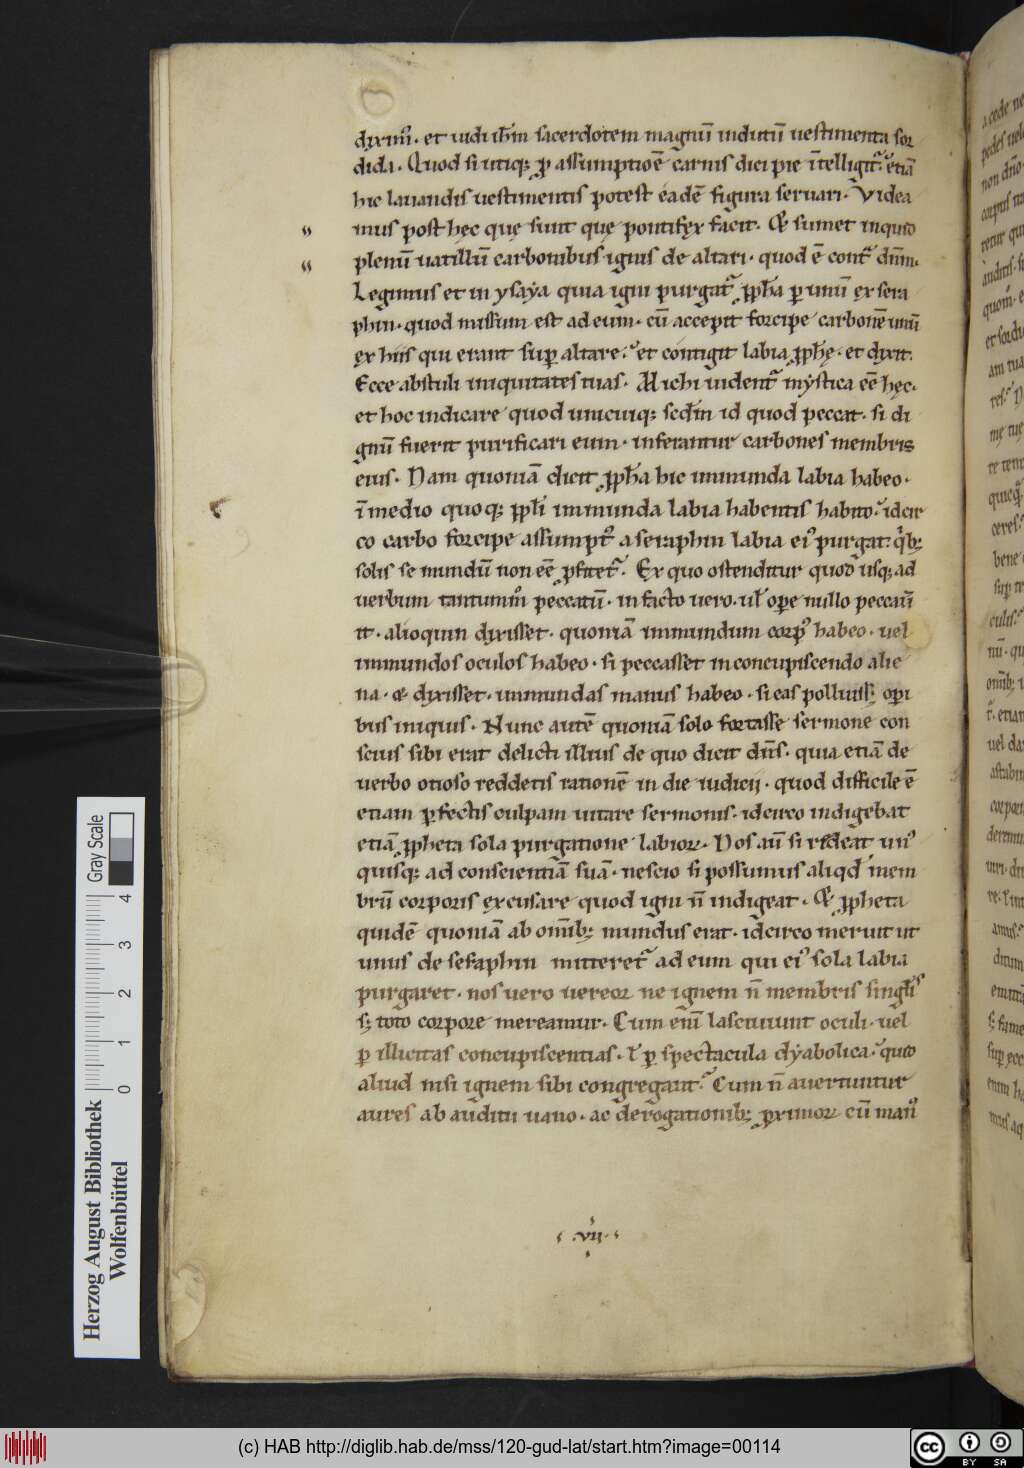 diximꝰ. et uidi ihm̄ sacerdotem magnū indutū uestimenta sor
dida. Quod si utiqꝫ ꝓ assumptioē carnis dici pie ītelligit᷑. etiā
hic lauandis uestimentis potest eadē figura seruari. Videa
mus post hęc quę sunt quę pontifex facit. Et sumet inquid
plenū uatillū carbonibus ignis de altari. quod ē cont᷑ dn̄m.
Legimus et in ysaẏa quia igni purgat᷑ ꝓph̄a ꝑ unū ex sera
phin. quod missum est ad eum. cū accepit forcipe carbonē unū
ex hiis qui erant suꝑ altare. et contigit labia ꝓph̄ę. et dixit.
Ecce abstuli iniquitates tuas. Michi uident᷑ mẏstica eē hęc.
et hoc indicare quod unicuiqꝫ scd̄m id quod peccat. si di
gnū fuerit purificari eum. inferantur carbones membris
eius. Nam quoniā dicit ꝓph̄a hic immunda labia habeo.
ī medio quoqꝫ ppl̄i immunda labia habentis habito. idcir
co carbo forcipe assumptꝰ a seraphin labia eiꝰ purgat. qͥbꝫ
solis se mundū non eē ꝓfitet᷑. Ex quo ostenditur quod usqꝫ ad
uerbum tantummͦ peccatū. in facto uero. ul̄ oꝑe nullo peccau̅
it. alioquin dixisset. quoniā immundum corpꝰ habeo. uel
immundos oculos habeo. si peccasset in concupiscendo alie
na. et dixisset. immundas manus habeo. si eas polluiss; oꝑi
bus iniquis. Nunc autē quoniā solo fortasse sermone con
scius sibi erat delicti illius de quo dicit dn̄s. quia etiā de
uerbo otioso reddetis rationē in die iudicij. quod difficile ē
etiam ꝑfectis culpam uitare sermonis. idcirco indigebat
etiā ꝓpheta sola purgatione labioꝝ. Nos aū si rideat unꝰ
quisqꝫ ad conscientiā suā. nescio si possumus aliqd mem
brū corporis excusare quod igni n̄ indigeat. Et ꝓpheta
quidē quoniā ab om̄ibꝫ mundus erat. idcirco meruit ut
unus de sesaphin mitteret᷑ ad eum qui eiꝰ sola labia
purgaret. nos uero uereor ne ignem n̄ membris singl̄is
sꝫ toto corpore mereamur. Cum enī lasciuiunt oculi. uel
ꝑ illicitas concupiscentias. ł ꝑ spectacula dẏabolica. quid
aliud nisi ignem sibi congregant. Cum n̄ auertuntur
aures ab auditu uano. ac derogationibꝫ ꝓximoꝝ cū manꝰ
.vii.
Herzog August Bibliothek
Wolfenbüttel
0 1 2 3 4
Gray Scale
(c) HAB http://diglib.hab.de/mss/120-gud-lat/start.htm?image=00114
cc BY SA